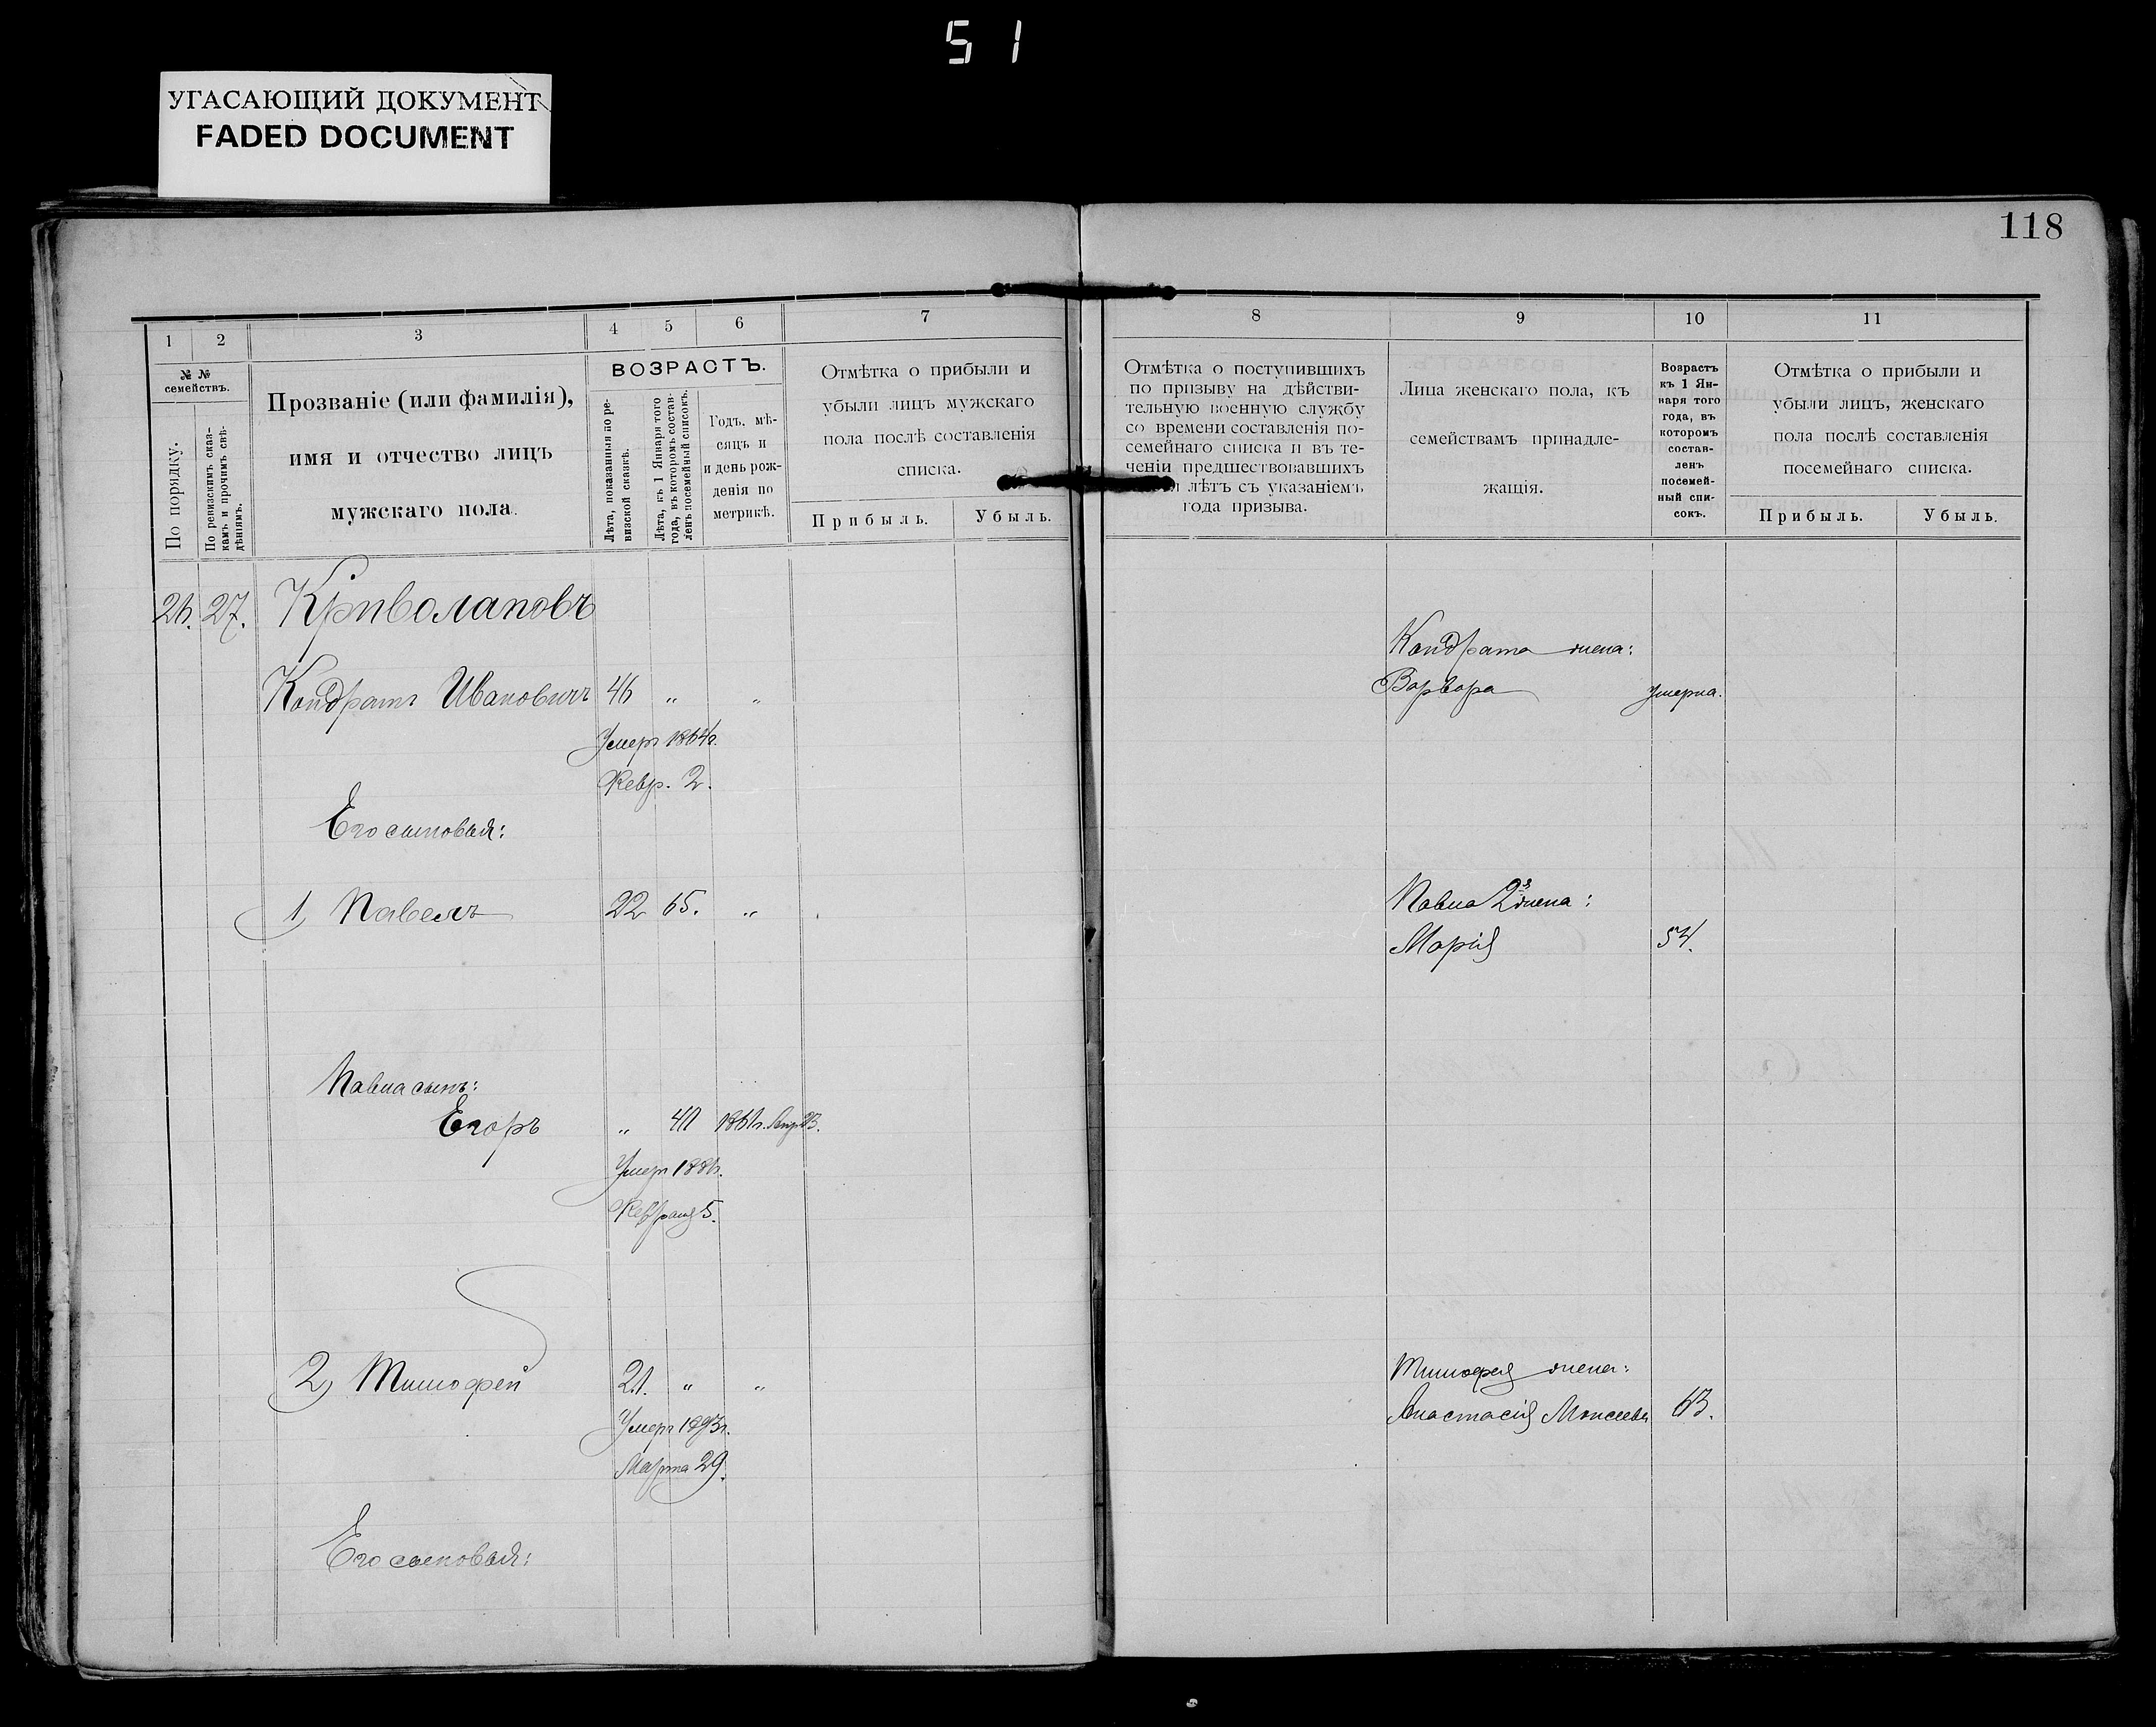 51
УГАСАЮЩИЙ ДОКУМЕНТ
FADED DOCUMENT
118
1 2 3 4 5 6 7
№ №
семействъ.
По порядку.
По ревизскимъ сказ-
камъ и прочимъ свѣ-
дѣніямъ.
Прозваніе (или фамилія),
имя и отчество лицъ
мужскаго пола.
ВОЗРАСТЪ.
Лѣта, показанныя по ре-
визской сказкѣ.
Лѣта, къ 1 Января того
года, въ которомъ состав-
ленъ посемейный списокъ.
Годъ, мѣ-
сяцъ и
и день рож-
денія по
метрикѣ.
Отмѣтка о прибыли и
убыли лицъ мужскаго
пола послѣ составленія
списка.
Прибыль. Убыль.
26. 27. Криволаповъ
Кондратъ Ивановичъ 46 „ „
Умеръ 1864г.
Февр. 2.
Его сыновья:
1, Павелъ 22 65. „
Павла сынъ:
Егоръ „ 41 1861г. Апр. 23.
Умеръ 188
Февраля 5.
2, Тимофей 21. „ „
Умеръ 1893г.
Марта 29.
Его сыновья:
8 9 10 11
Отмѣтка о поступившихъ
по призыву на дѣйстви-
тельную военную службу
со времени составленія по-
семейнаго списка и въ те-
ченіи предшествовавшихъ
лѣтъ съ указаніемъ
года призыва.
Лица женскаго пола, къ
семействамъ принадле-
жащія.
Возрастъ
къ 1 Ян-
варя того
года, въ
которомъ
состав-
ленъ
посемей-
ный спи-
сокъ.
Отмѣтка о прибыли и
убыли лицъ, женскаго
пола послѣ составленія
посемейнаго списка.
Прибыль. Убыль.
Кондрата жена:
Варвара умерла.
Павла 2я жена:
Марія 54.
Тимофея жена:
Анастасія Моисеева 63.